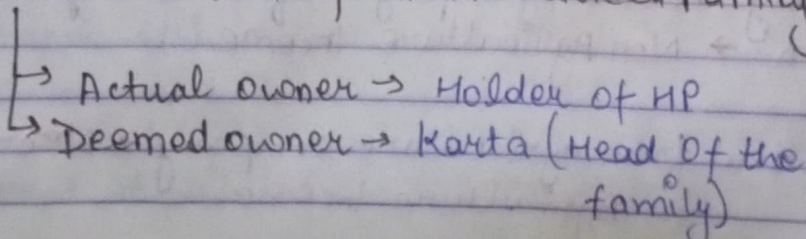 → Actual owner → Holder of HP
→ Deemed owner → Karta (Head of the
family)